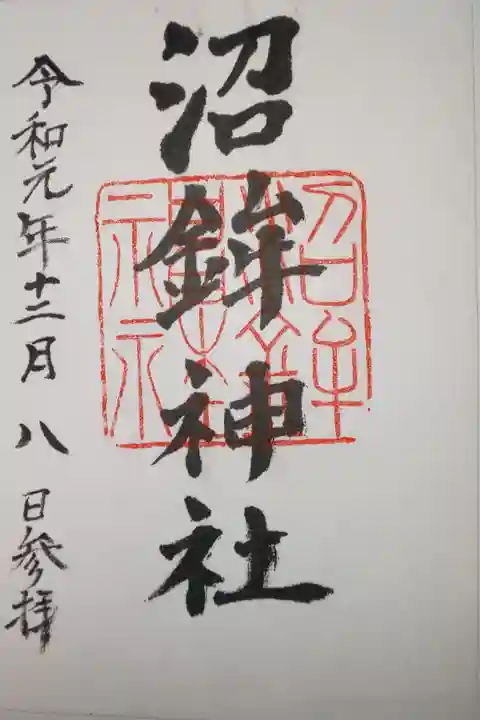 沼鉾神社
令和元年十二月八日参拝
沼鉾神社